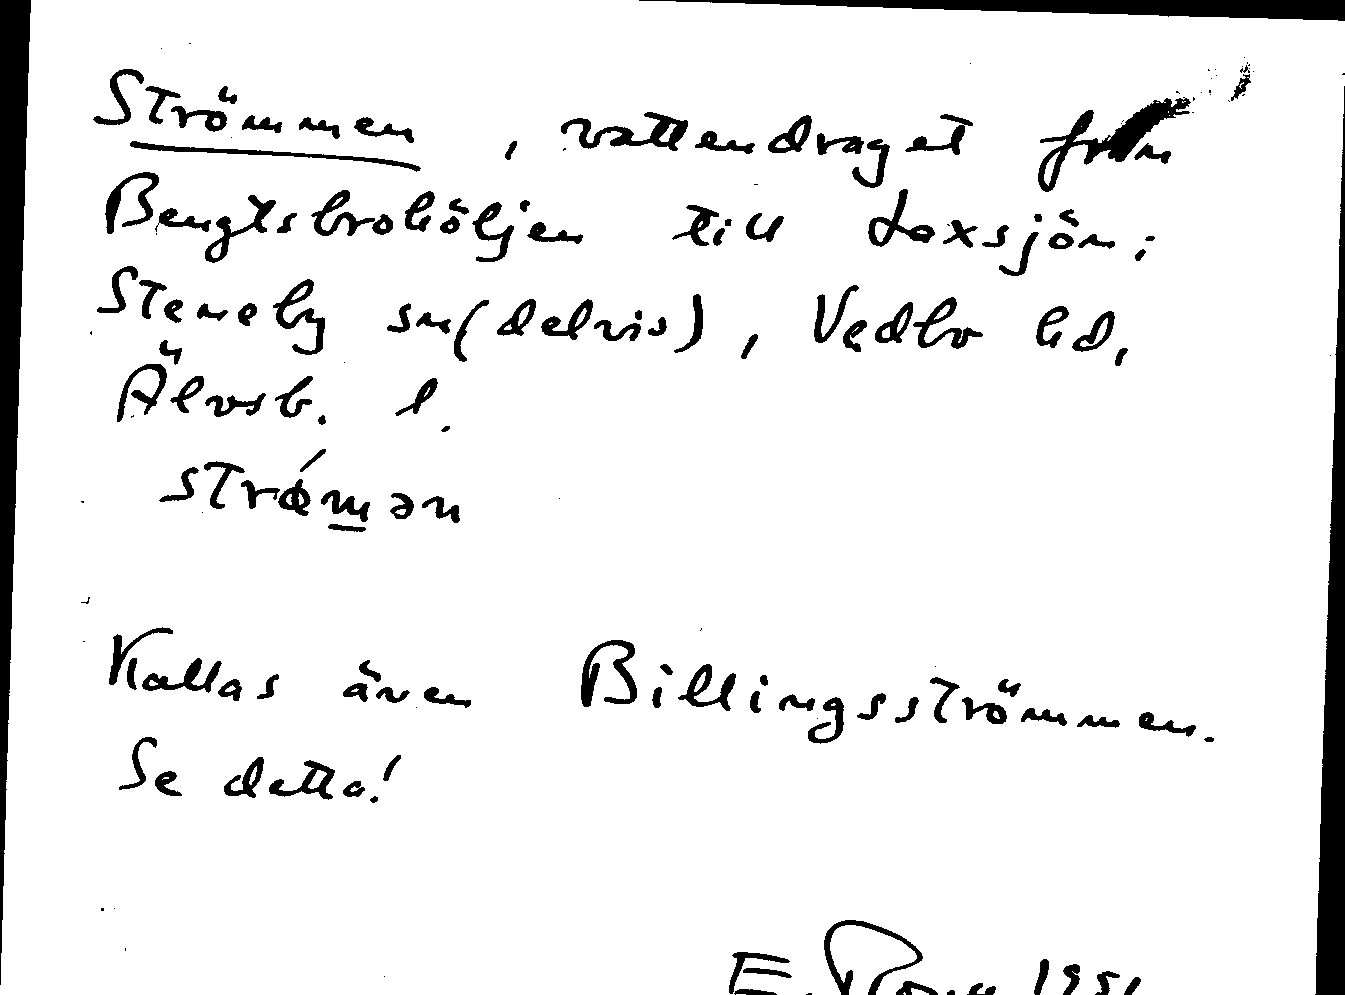 Strömmen, vattendraget från
Bengtsbrohöljen till Laxsjön;
Steneby sn (delvis), Vedbo hd,
Älvsb. l.
strǿmən
Kallas även Billingsströmmen.
Se detta!
E. 1951